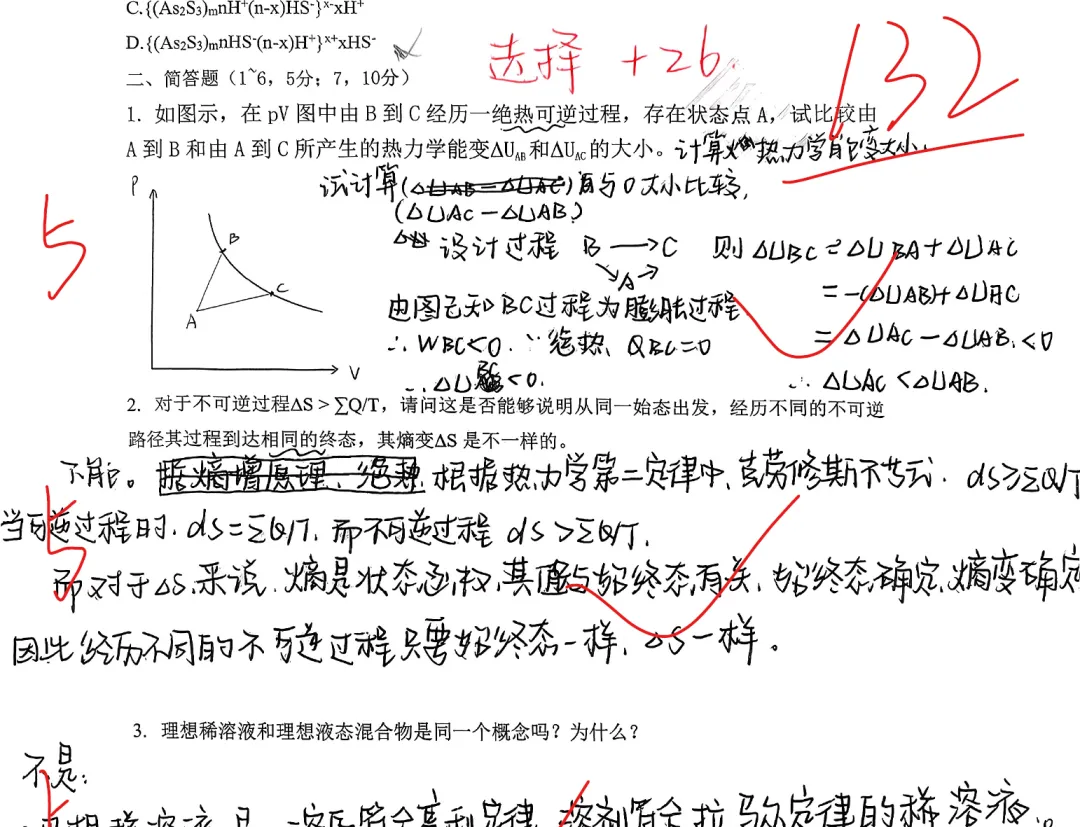 C.{(As₂S₃)ₘnH⁺(n-x)HS⁻}ˣ⁻xH⁺
D.{(As₂S₃)ₘnHS⁻(n-x)H⁺}ˣ⁺xHS⁻
选择 +26.
132
二、简答题（1~6，5分；7，10分）
1. 如图示，在 pV 图中由 B 到 C 经历一绝热可逆过程，存在状态点 A，试比较由
A 到 B 和由 A 到 C 所产生的热力学能变ΔU_AB 和ΔU_AC 的大小。计算 热力学能变大小.
试计算(ΔUAB-ΔUAC) 与0大小比较,
(ΔUAC-ΔUAB)
5
P
B
C
A
V
设计过程 B→C 则ΔUBC=ΔUBA+ΔUAC
↘A↗
=-(ΔUAB)+ΔUAC
由图已知BC过程为膨胀过程
=ΔUAC-ΔUAB.<0
∴WBC<0. ∵绝热. QBC=0
∴ΔU <0.
∴ΔUAC<ΔUAB.
2. 对于不可逆过程ΔS > ∑Q/T，请问这是否能够说明从同一始态出发，经历不同的不可逆
路径其过程到达相同的终态，其熵变ΔS 是不一样的。
不能。 熵增原理、 根据热力学第二定律中,克劳修斯不等式. dS≥ΣQ/T
当可逆过程时. dS=ΣQ/T. 而不可逆过程 dS>ΣQ/T.
5
而对于ΔS来说. 熵是状态函数,其值与始终态有关. 始终态确定,熵变确定
因此经历不同的不可逆过程只要始终态一样, ΔS一样。
3. 理想稀溶液和理想液态混合物是同一个概念吗？为什么？
不是:
理想稀溶液是 一定 符合亨利定律, 溶剂符合拉乌尔定律的稀溶液。